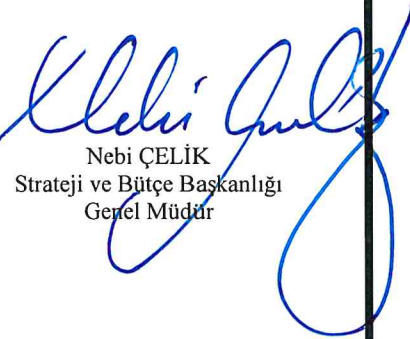 Nebi ÇELİK
Strateji ve Bütçe Başkanlığı
Genel Müdür